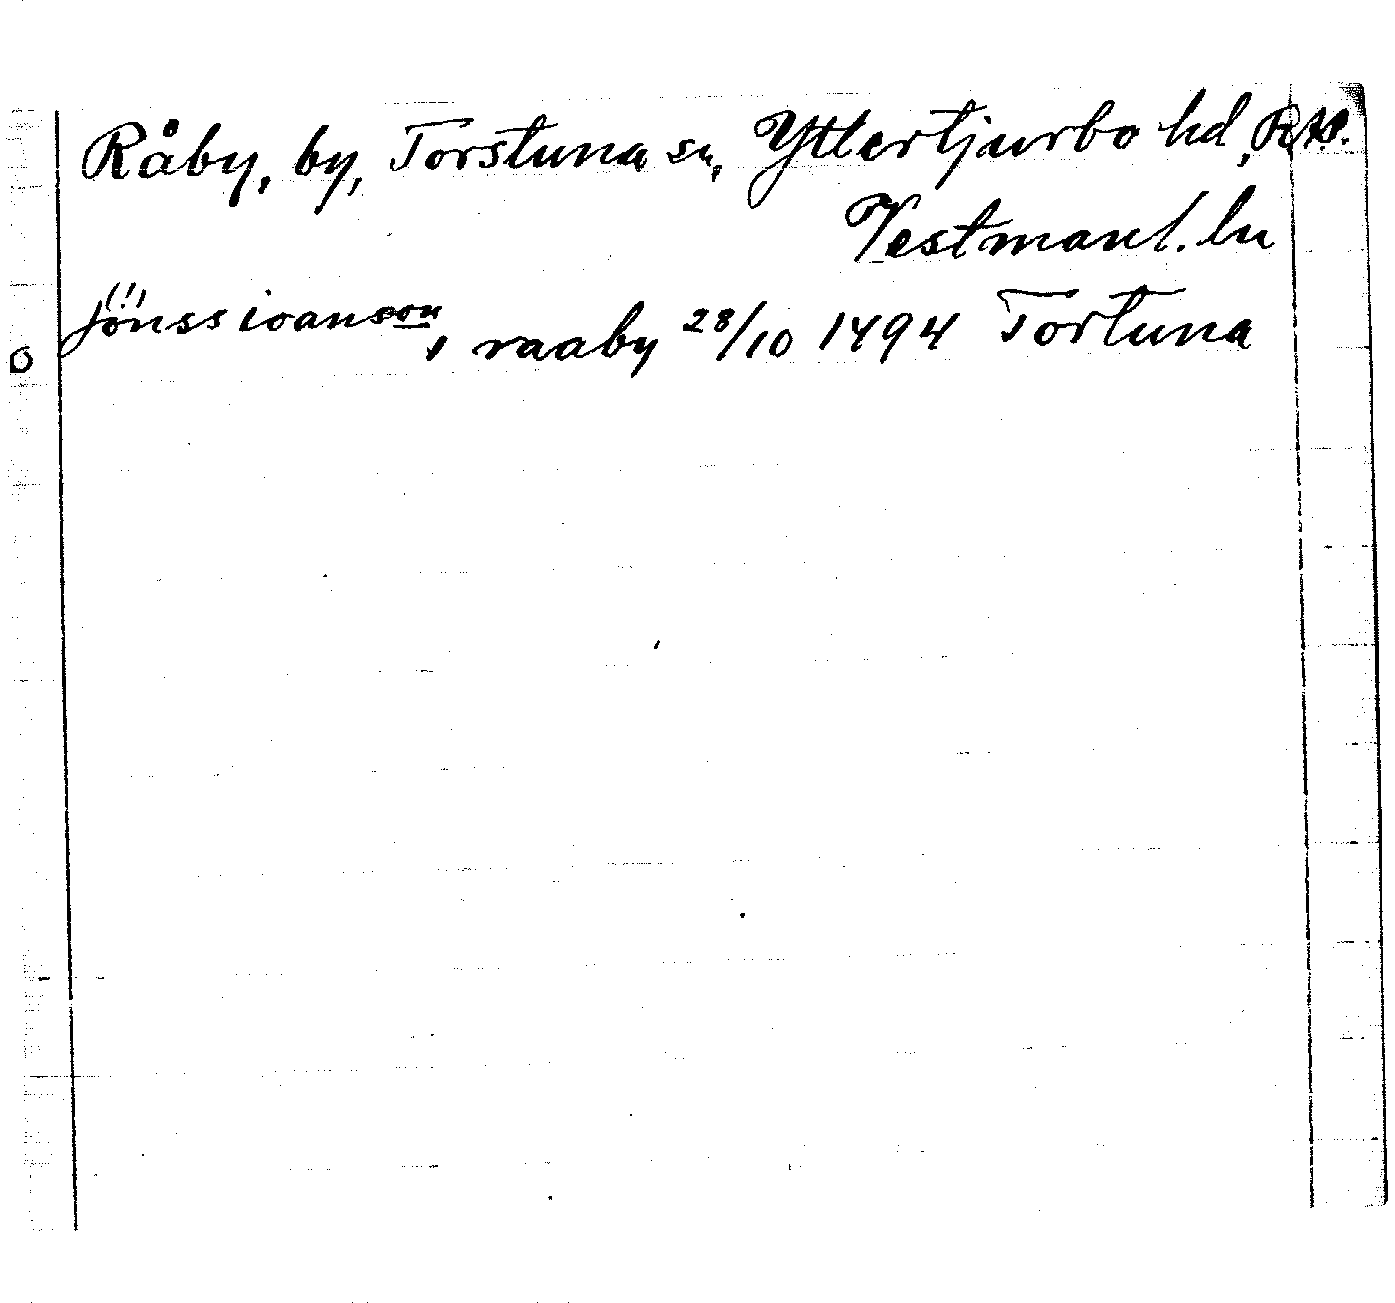 Råby, by, Torstuna sn, Yttertjurbo hd, RAP.
Vestmanl. ln
(!)
jönss ioansson, raaby 28/10 1494 Tortuna